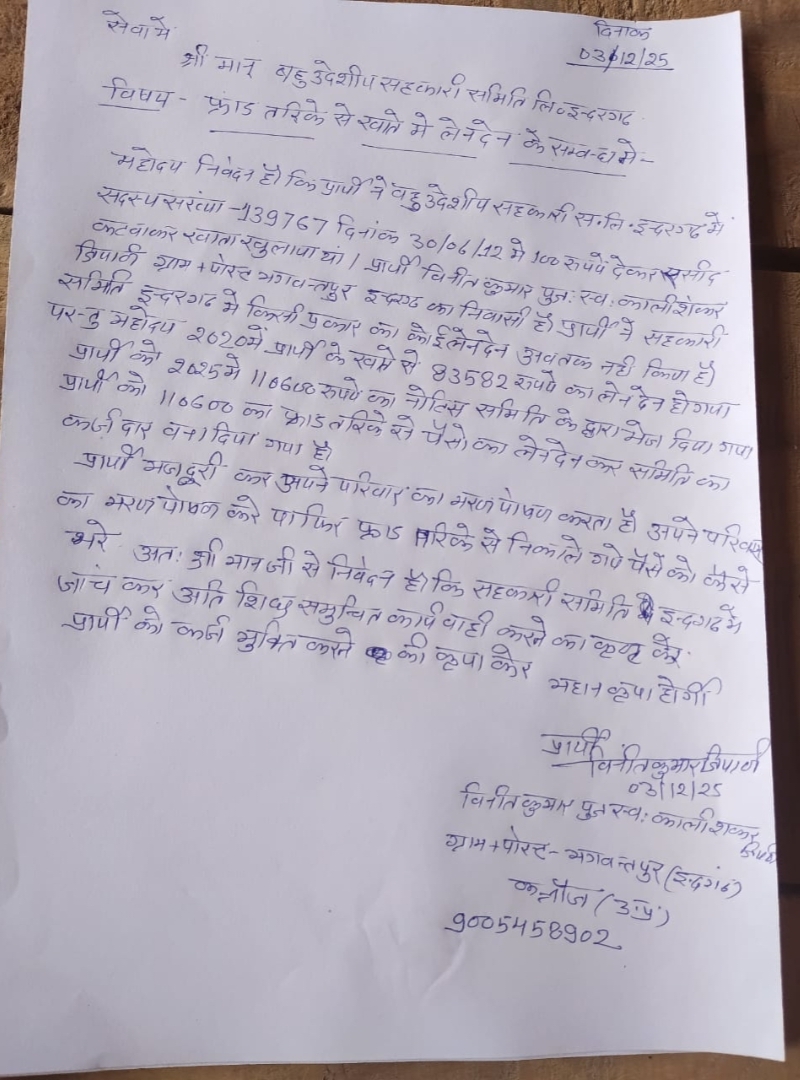 सेवा मे
दिनांक
03/12/25
श्री मान् बहुउदेशीय सहकारी समिति लि॰ इन्दरगढ
विषय - फ्राड तरिके से खाते मे लेनदेन के सम्बन्ध मे -
महोदय निवेदन है। कि प्रार्थी ने बहुउदेशीय सहकारी स॰लि॰ इन्दरगढ में
सदस्य संख्या - 139767 दिनांक 30/06/12 मे 100 रुपये देकर रसीद
कटवाकर खाता खुलाया था। प्रार्थी विनीत कुमार पुत्रः स्वः कालीशंकर
त्रिपाठी ग्राम + पोस्ट भगवन्तपुर इन्दरगढ का निवासी है। प्रार्थी ने सहकारी
समिति इन्दरगढ मे किसी प्रकार का कोई लेनदेन अबतक नही किया है।
परन्तु महोदय 2020 में प्रार्थी के खाते से 83582 रुपये का लेनदेन हो गया
प्रार्थी को 2025 मे 110600 रुपये का नोटिस समिति के द्वारा भेज दिया गया
प्रार्थी को 110600 का फ्राड तरिके से पैसो का लेनदेन कर समिति का
कर्जदार बना दिया गया है।
प्रार्थी मजदूरी कर अपने परिवार का भरण पोषण करता है। अपने परिवार
का भरण पोषण करे या फिर फ्राड तरिके से निकाले गये पैसे को कैसे
भरे अतः श्री मान जी से निवेदन है। कि सहकारी समिति इन्दरगढ में
जांच कर अति शिघ्र समुचित कार्यवाही करने का कष्ट करे
प्रार्थी को कर्ज मुक्ति करने की कृपा करे
महान कृपा होगी
प्रार्थी
विनीत कुमार त्रिपाठी
03/12/25
विनीत कुमार पुत्र स्वः कालीशंकर
त्रिपाठी
ग्राम + पोस्ट - भगवन्तपुर (इन्दरगढ)
कन्नौज (उ.प्र)
9005458902